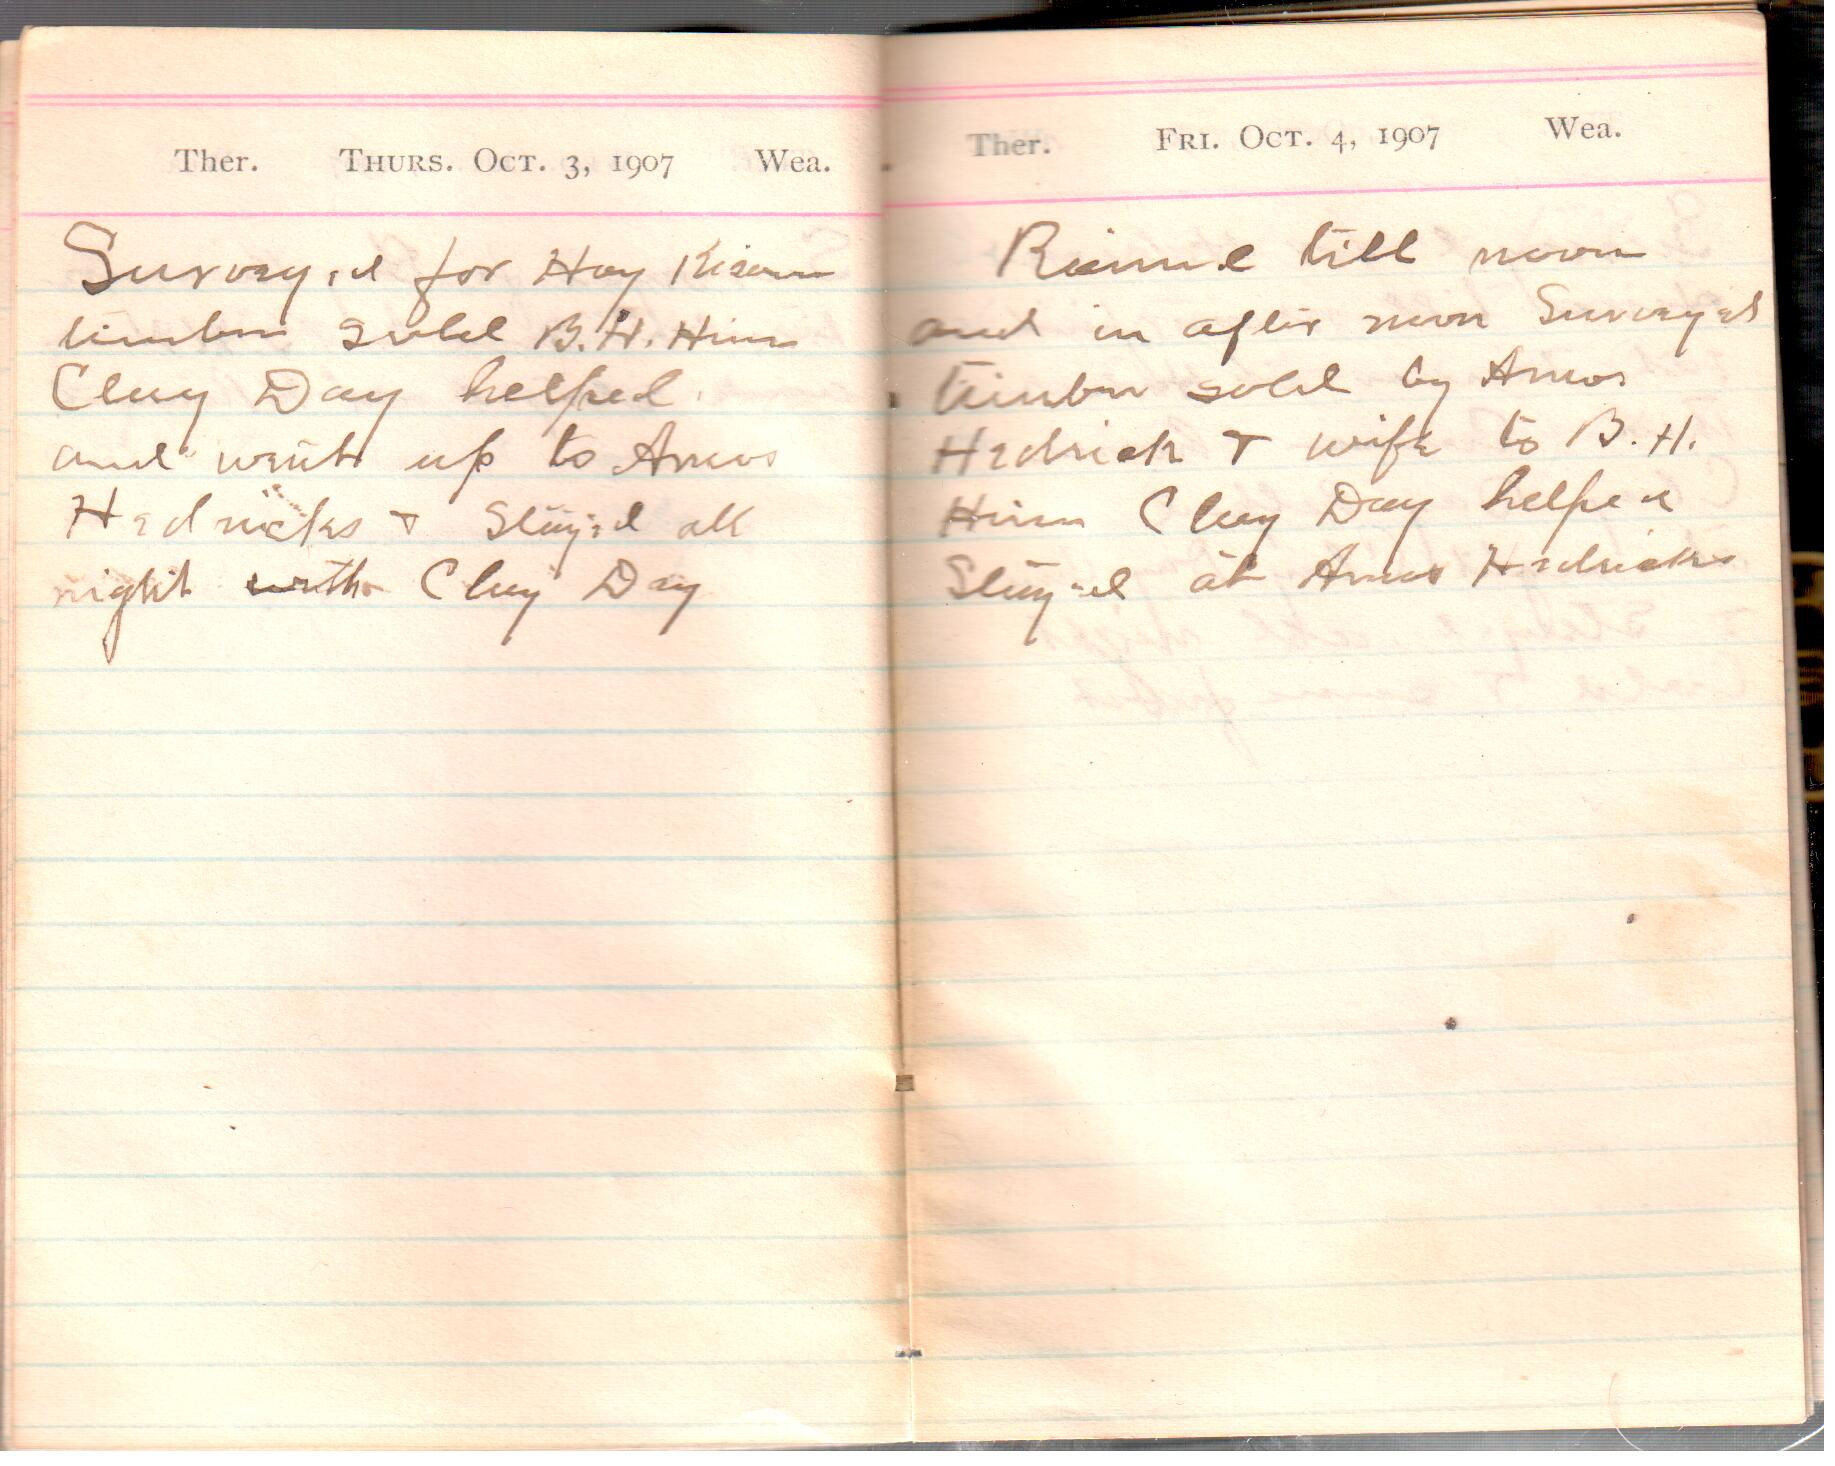 Ther. THURS. OCT. 3, 1907 Wea.
Surveyed for Hoy
timber sold B. H. Hinn
Clay Day helped
and went up to Amos
Hedricks & Stayed all
night with Clay Day
Ther. FRI. OCT. 4, 1907 Wea.
Rained till noon
and in after noon Surveyed
timber sold by Amos
Hedrick & wife to B. H.
Hinn Clay Day helped
Stayed at Amos Hedricks